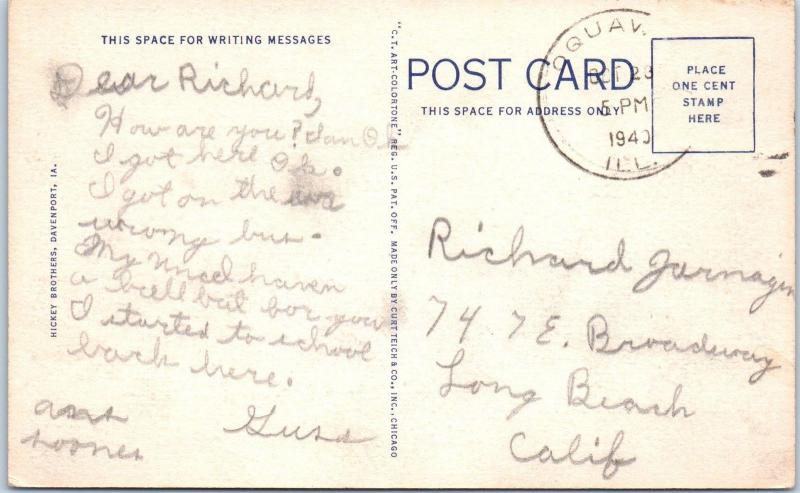 THIS SPACE FOR WRITING MESSAGES
Dear Richard,
How are you? I am O.k.
I got here O.k.
I got on the
wrong bus.
My uncel haven
a bell but bor you
I started to school
back here.
HICKEY BROTHERS, DAVENPORT, IA.
"C.T. ART-COLORTONE" REG. U.S. PAT. OFF. MADE ONLY BY CURT TEICH & CO., INC., CHICAGO
POST CARD
THIS SPACE FOR ADDRESS ONLY
OQUAW
OCT 23
5 PM
1940
ILL.
PLACE
ONE CENT
STAMP
HERE
Richard Jarnagin
747 E. Broadway
Long Beach
Calif